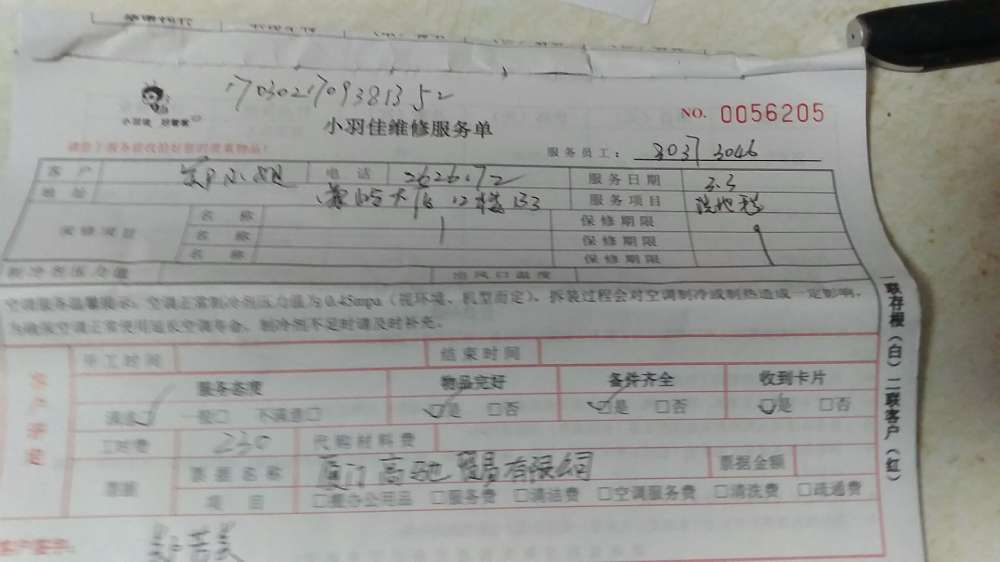 17030217093813 52
小羽佳 好管家
NO. 0056205
小羽佳维修服务单
服务员工: 3037 3046
客户 小姐 电话 2626.72 服务日期 3.3
地址 大厦12楼 服务项目 洗地毯
保修项目 名称 保修期限
名称 保修期限
名称 保修期限
制冷剂压力值 出风口温度
空调服务温馨提示:空调正常制冷剂压力值为0.45mpa(视环境、机型而定)、拆装过程会对空调制冷或制热造成一定影响,
为确保空调正常使用延长空调寿命,制冷剂不足时请及时补充。
开工时间 结束时间
客户评定
服务态度 物品完好 备件齐全 收到卡片
满意□ 一般□ 不满意□ □是 □否 □是 □否 □是 □否
工时费 230 代购材料费
票据 票据名称 厦门高 贸易有限公司 票据金额
项目 □办公用品 □服务费 □清洁费 □空调服务费 □清洗费 □疏通费
客户签字:
一联存根(白)二联客户(红)